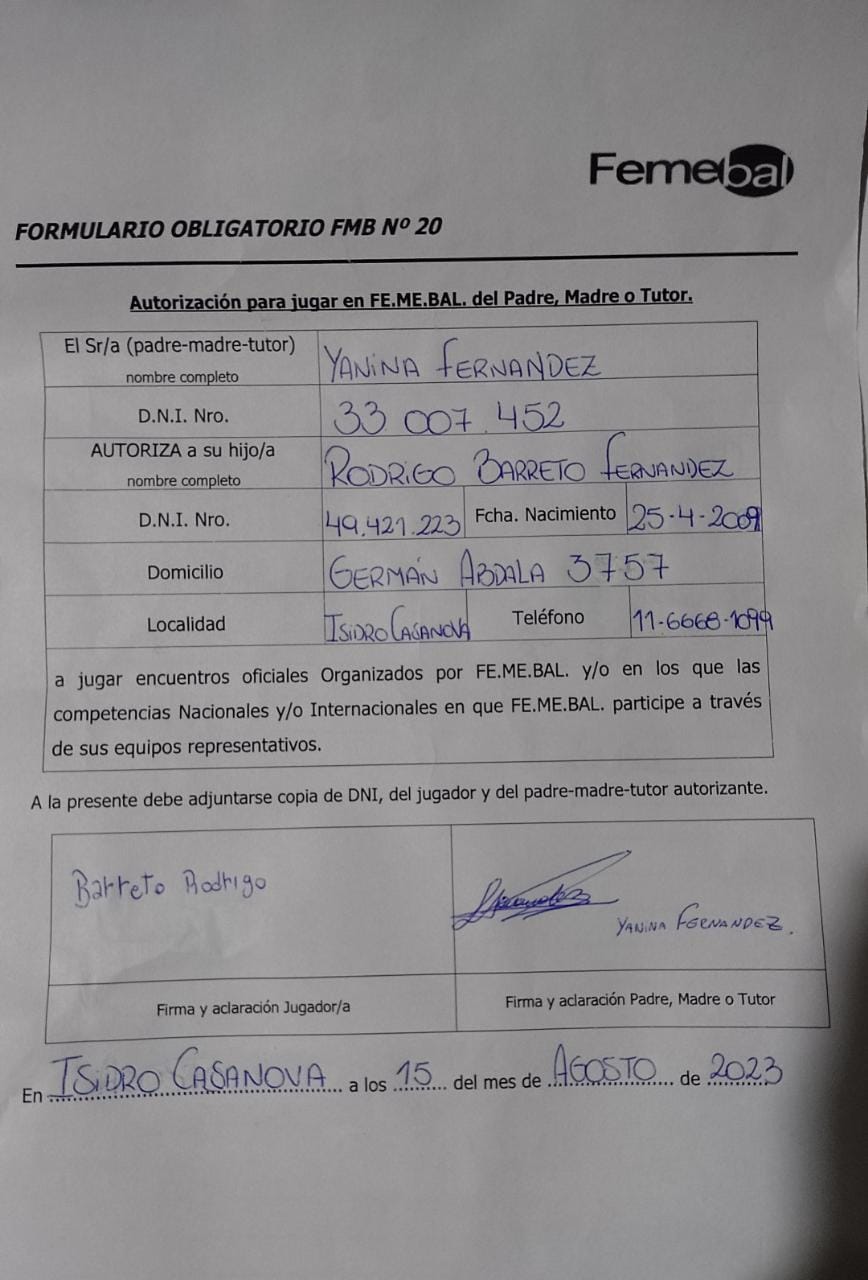 Femebal
FORMULARIO OBLIGATORIO FMB Nº 20
Autorización para jugar en FE.ME.BAL. del Padre, Madre o Tutor.
El Sr/a (padre-madre-tutor)
nombre completo
YANINA FERNANDEZ
D.N.I. Nro.
33 007.452
AUTORIZA a su hijo/a
nombre completo
RODRIGO BARRETO FERNANDEZ
D.N.I. Nro.
49.421.223
Fcha. Nacimiento
25-4-2009
Domicilio
GERMÁN ABDALA 3757
Localidad
ISIDRO CASANOVA
Teléfono
11-6668-1099
a jugar encuentros oficiales Organizados por FE.ME.BAL. y/o en los que las
competencias Nacionales y/o Internacionales en que FE.ME.BAL. participe a través
de sus equipos representativos.
A la presente debe adjuntarse copia de DNI, del jugador y del padre-madre-tutor autorizante.
Barreto Rodrigo
YANINA FERNANDEZ.
Firma y aclaración Jugador/a
Firma y aclaración Padre, Madre o Tutor
En ISIDRO CASANOVA a los 15 del mes de AGOSTO de 2023